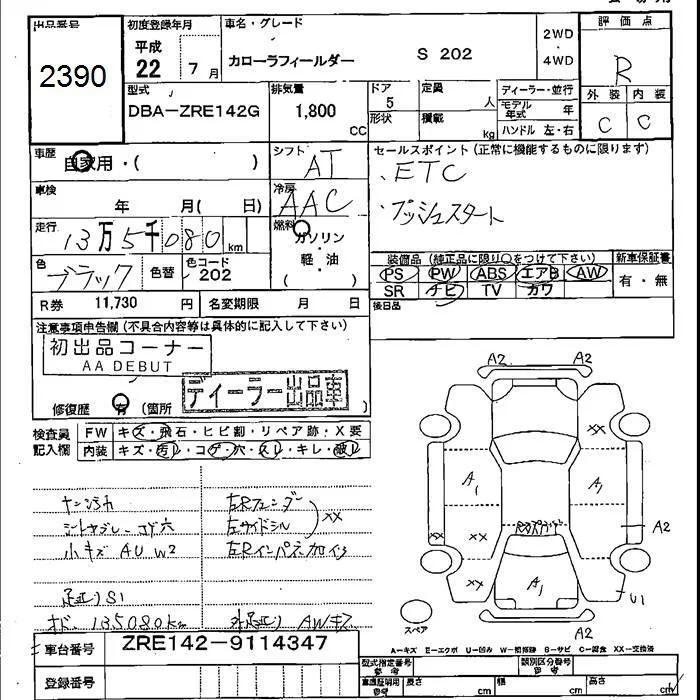 出品番号
2390
初度登録年月
平成
22 7月
車名・グレード
カローラフィールダー S 202
2WD
・
4WD
評価点
R
型式
DBA-ZRE142G
排気量
1,800
CC
ドア
5
形状
定員
人
積載
kg
ディーラー・並行
モデル年式 年
ハンドル 左・右
外装 内装
C C
車歴
自家用・( )
シフト
AT
セールスポイント (正常に機能するものに限ります)
、ETC
、プッシュスタート
車検
年 月( 日)
冷房
AAC
走行
13万5千080 km
燃料
ガソリン
軽・油
( )
色
ブラック
色替
色コード
202
装備品 (純正品に限り〇をつけて下さい)
新車保証書
PS PW ABS エアB AW
有・無
SR ナビ TV カワ
後日品
R券 11,730 円
名変期限 月 日
注意事項申告欄 (不具合内容等は具体的に記入して下さい)
初出品コーナー
AA DEBUT
ディーラー出品車
修復歴 有 (箇所 )
検査員
記入欄
FW キズ・飛石・ヒビ割・リペア跡・X要
内装 キズ・汚レ・コゲ・穴・スレ・キレ・破レ
小キズ AU W2
左Rフェンダー
左サイドシル
XX
足廻りS1
135080km
外足廻り AWキズ
車台番号 ZRE142-9114347
登録番号
A2 A2
XX
A1 A1
XX XX
A2
XX
A1
U1
A2
スペア
A-キズ E-エクボ U-凹み W-補修跡 S-サビ C-腐食 XX-交換済
型式指定番号
参考
類別区分番号
参考
車庫証明用
参考
長さ cm
幅 cm
高さ cm